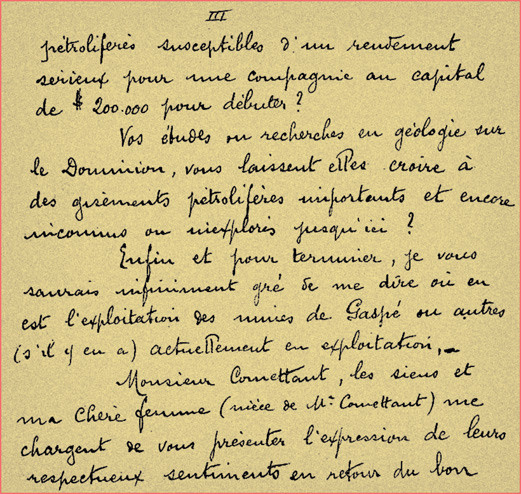 III
pétrolifères susceptibles d'un rendement
serieux pour une compagnie au capital
de $ 200.000 pour débuter ?
Vos études ou recherches en géologie sur
le Dominion, vous laissent elles croire à
des gisements pétrolifères importants et encore
inconnus ou inexplorés jusqu'ici ?
Enfin et pour terminer, je vous
saurais infiniment gré de me dire où en
est l'exploitation des mines de Gaspé ou autres
(s'il y en a) actuellement en exploitation,
Monsieur Comettant, les siens et
ma chère femme (nièce de Mr Comettant) me
chargent de vous présenter l'expression de leurs
respectueux sentiments en retour du bon